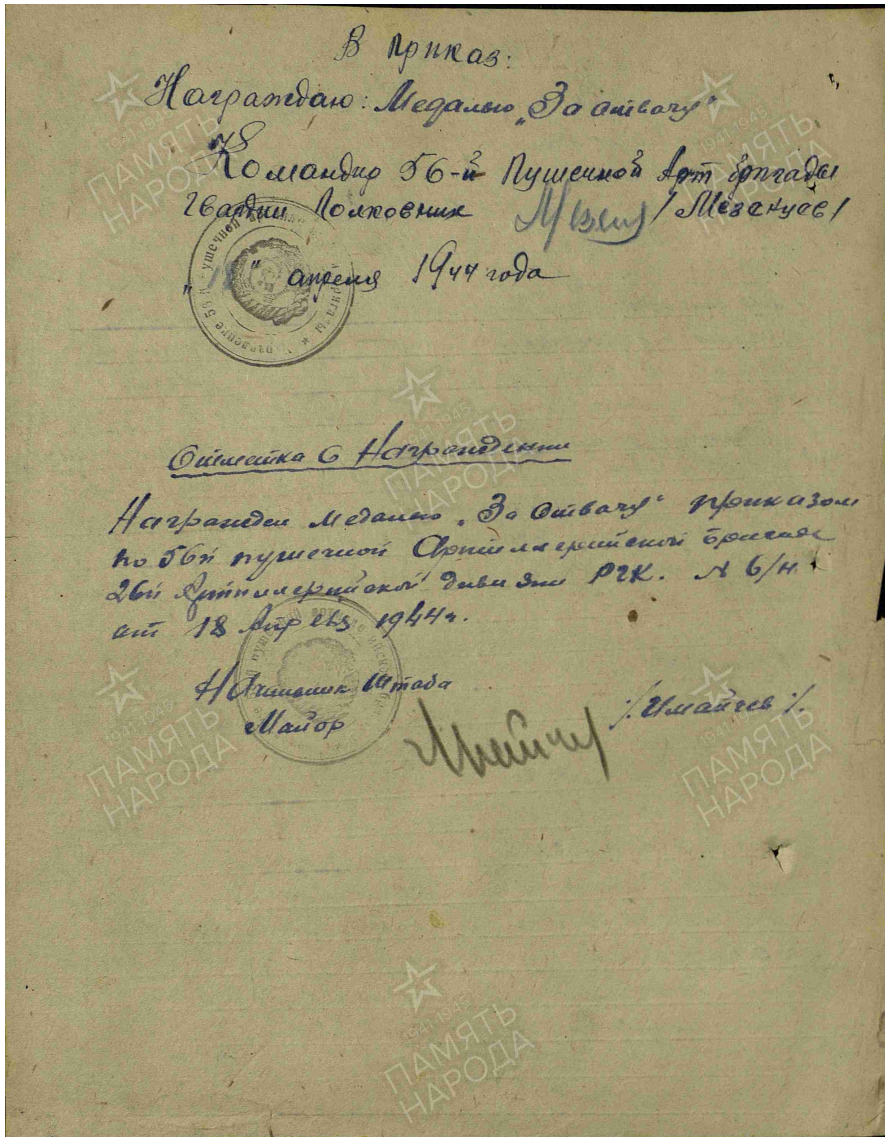 В приказ:
Награждаю: Медалью „За отвагу"
Командир 56-й Пушечной Арт бригады
Гвардии Полковник /Мезенцев/
„18" апреля 1944 года
Отметка о Награждении
Награжден медалью „За Отвагу" приказом
по 56й пушечной Артиллерийской бригаде
26й Артиллерийской дивизии РГК. N б/н.
от 18 Апреля 1944г.
Начальник Штаба
Майор /Имайчев/.
ПАМЯТЬ
НАРОДА
1941-1945